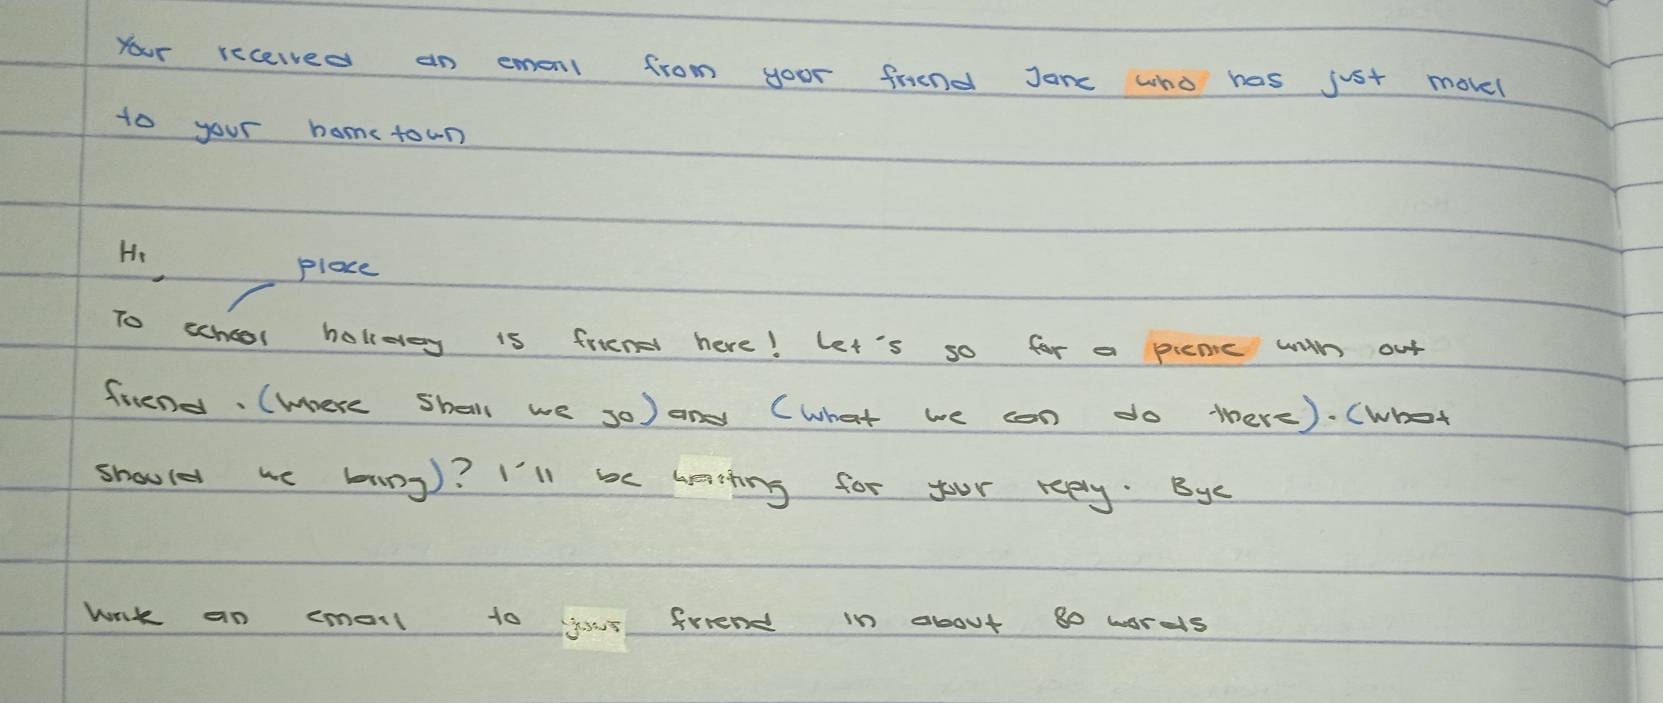 Your received an email from your friend Jane who has just moved
to your hometown
Hi,
place
To school holiday is friend here! Let's go for a picnic with out
friend. (where shall we go) and (what we can do there). (What
should we bring)? I'll be waiting for your reply. Bye
Write an email to your friend in about 80 words